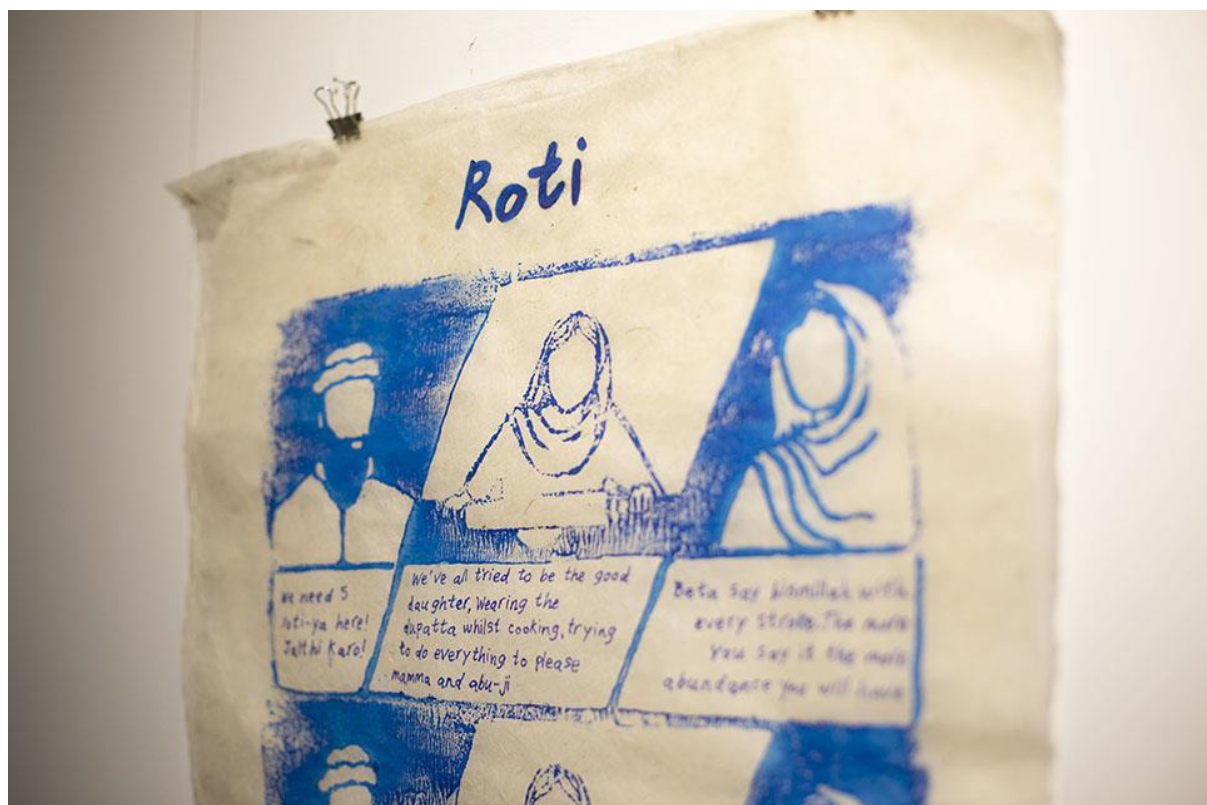 Roti
We need 5
roti-ya here!
Jalthi Karo!
We've all tried to be the good
daughter, Wearing the
dupatta whilst cooking, trying
to do everything to please
mamma and abu-ji
Beta say bismillah with
every stroke. The more
you say it the more
abundance you will have